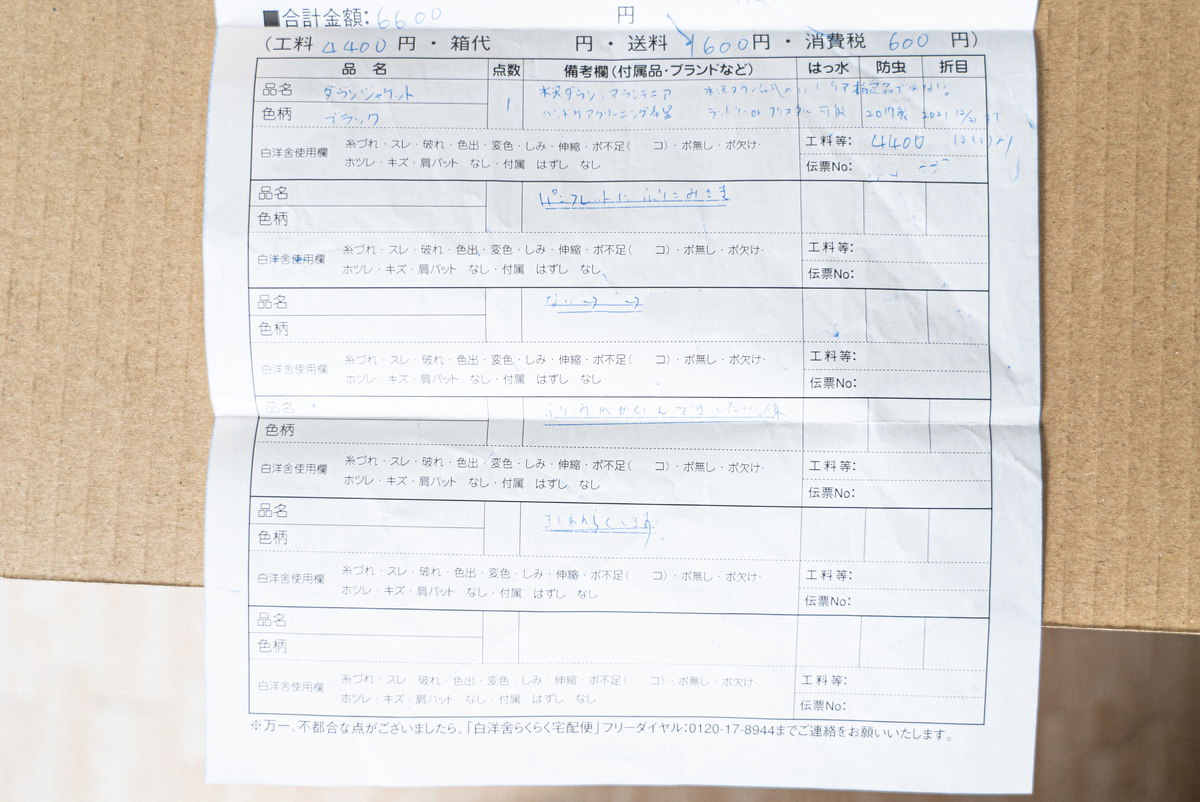 ■合計金額: 6600 円
(工料 4400 円・箱代 円・送料 1600円・消費税 600 円)
品名 点数 備考欄(付属品・ブランドなど) はっ水 防虫 折目
品名 ダウンジャケット 1 水沢ダウン・マウンテニア 水沢ダウン公式の ケア指定品ではない。
色柄 ブラック ハンドケアクリーニング希望
白洋舍使用欄 糸づれ・スレ・破れ・色出・変色・しみ・伸縮・ボ不足( コ)・ボ無し・ボ欠け・ 工料等: 4400
ホツレ・キズ・肩パット なし・付属 はずし なし 伝票No:
品名 パンフレットに
色柄
白洋舍使用欄 糸づれ・スレ・破れ・色出・変色・しみ・伸縮・ボ不足( コ)・ボ無し・ボ欠け・ 工料等:
ホツレ・キズ・肩パット なし・付属 はずし なし 伝票No:
品名
色柄
白洋舍使用欄 糸づれ・スレ・破れ・色出・変色・しみ・伸縮・ボ不足( コ)・ボ無し・ボ欠け・ 工料等:
ホツレ・キズ・肩パット なし・付属 はずし なし 伝票No:
品名
色柄
白洋舍使用欄 糸づれ・スレ・破れ・色出・変色・しみ・伸縮・ボ不足( コ)・ボ無し・ボ欠け・ 工料等:
ホツレ・キズ・肩パット なし・付属 はずし なし 伝票No:
品名
色柄
白洋舍使用欄 糸づれ・スレ・破れ・色出・変色・しみ・伸縮・ボ不足( コ)・ボ無し・ボ欠け・ 工料等:
ホツレ・キズ・肩パット なし・付属 はずし なし 伝票No:
品名
色柄
白洋舍使用欄 糸づれ・スレ・破れ・色出・変色・しみ・伸縮・ボ不足( コ)・ボ無し・ボ欠け・ 工料等:
ホツレ・キズ・肩パット なし・付属 はずし なし 伝票No:
※万一、不都合な点がございましたら、「白洋舍らくらく宅配便」フリーダイヤル:0120-17-8944までご連絡をお願いいたします。